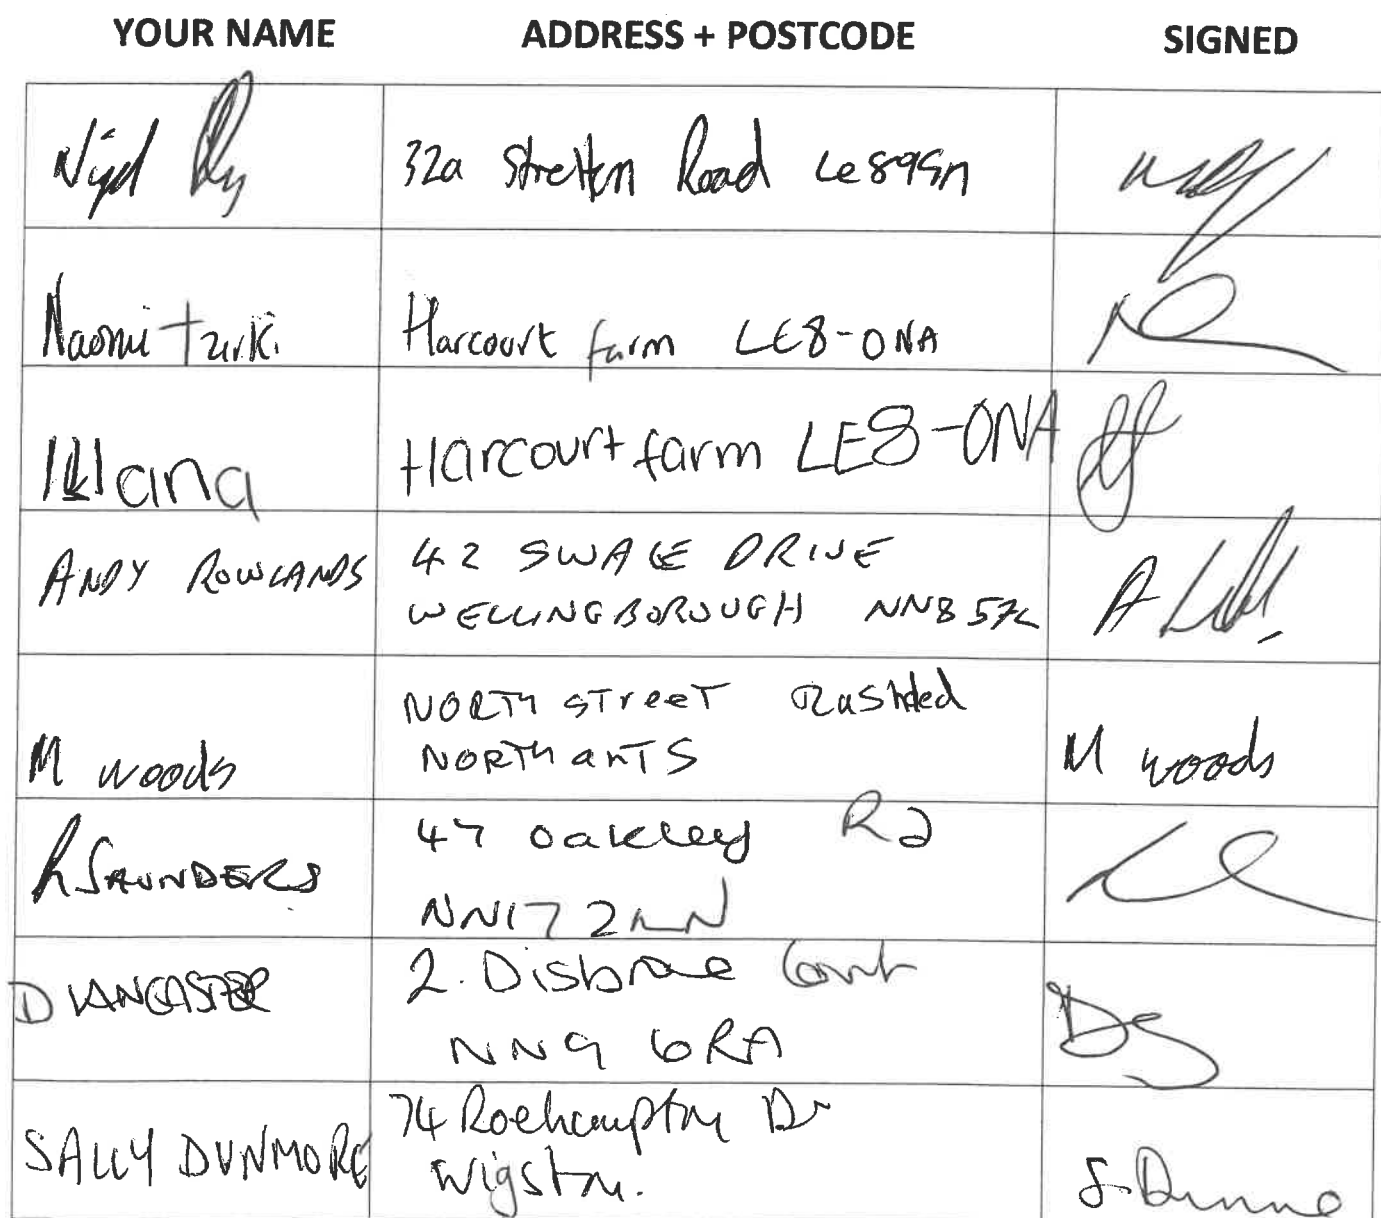 YOUR NAME ADDRESS + POSTCODE SIGNED
Nigel 32a Stretton Road Le89GN
Naomi Harcourt farm LE8-0NA
Harcourt farm LE8-0NA
ANDY ROWLANDS 42 SWALE DRIVE
WELLINGBOROUGH NN8 5ZL
NORTH STreeT Rushded
M woods NORTHanTS M woods
R SAUNDERS 47 Oakley Rd
NN17 2
D LANCASTER 2. Court
NN9 6RA
SALLY DUNMORE 74 Roehampton Dr
Wigston. S. Dunmo